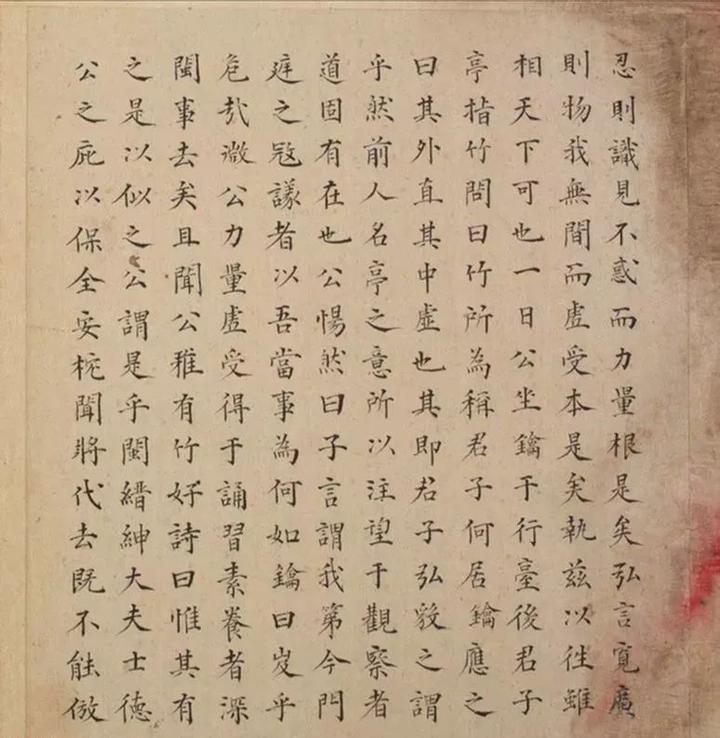 忍則識見不惑而力量根是矣弘言寬廣
則物我無間而虛受本是矣執茲以徃雖
相天下可也一日公坐鑰于行臺後君子
亭指竹問曰竹所為稱君子何居鑰應之
曰其外直其中虛也其即君子弘毅之謂
乎然前人名亭之意所以注望于觀察者
道固有在也公惕然曰子言謂我第今門
庭之宼議者以吾當事為何如鑰曰岌乎
危哉微公力量虛受得于誦習素養者深
閩事去矣且聞公稚有竹好詩曰惟其有
之是以似之公謂是乎閩縉紳大夫士德
公之庇以保全妥椀聞將代去既不能倣